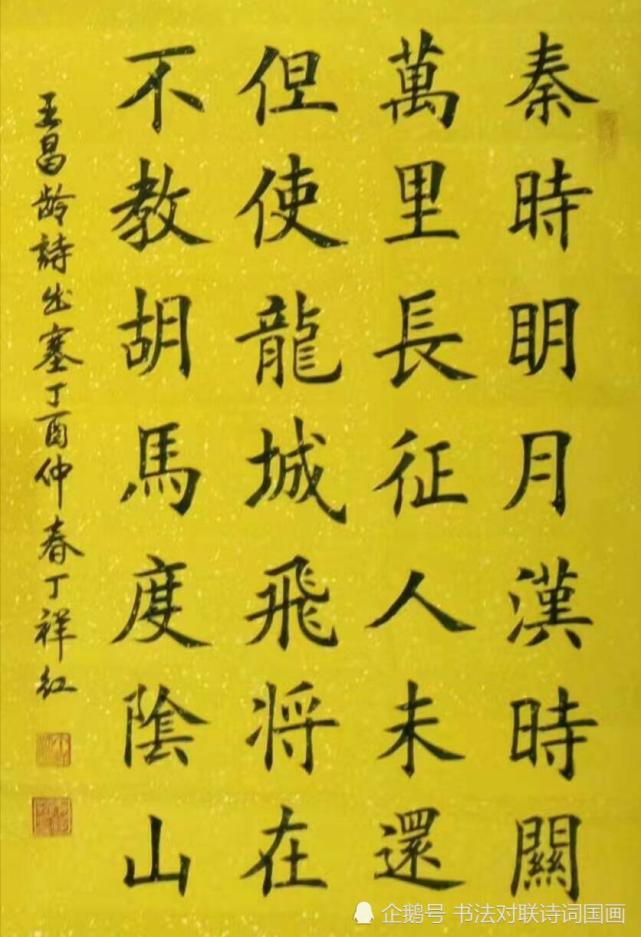 秦時明月漢時關
萬里長征人未還
但使龍城飛将在
不教胡馬度陰山
王昌龄詩出塞丁酉仲春丁祥红
企鹅号 书法对联诗词国画